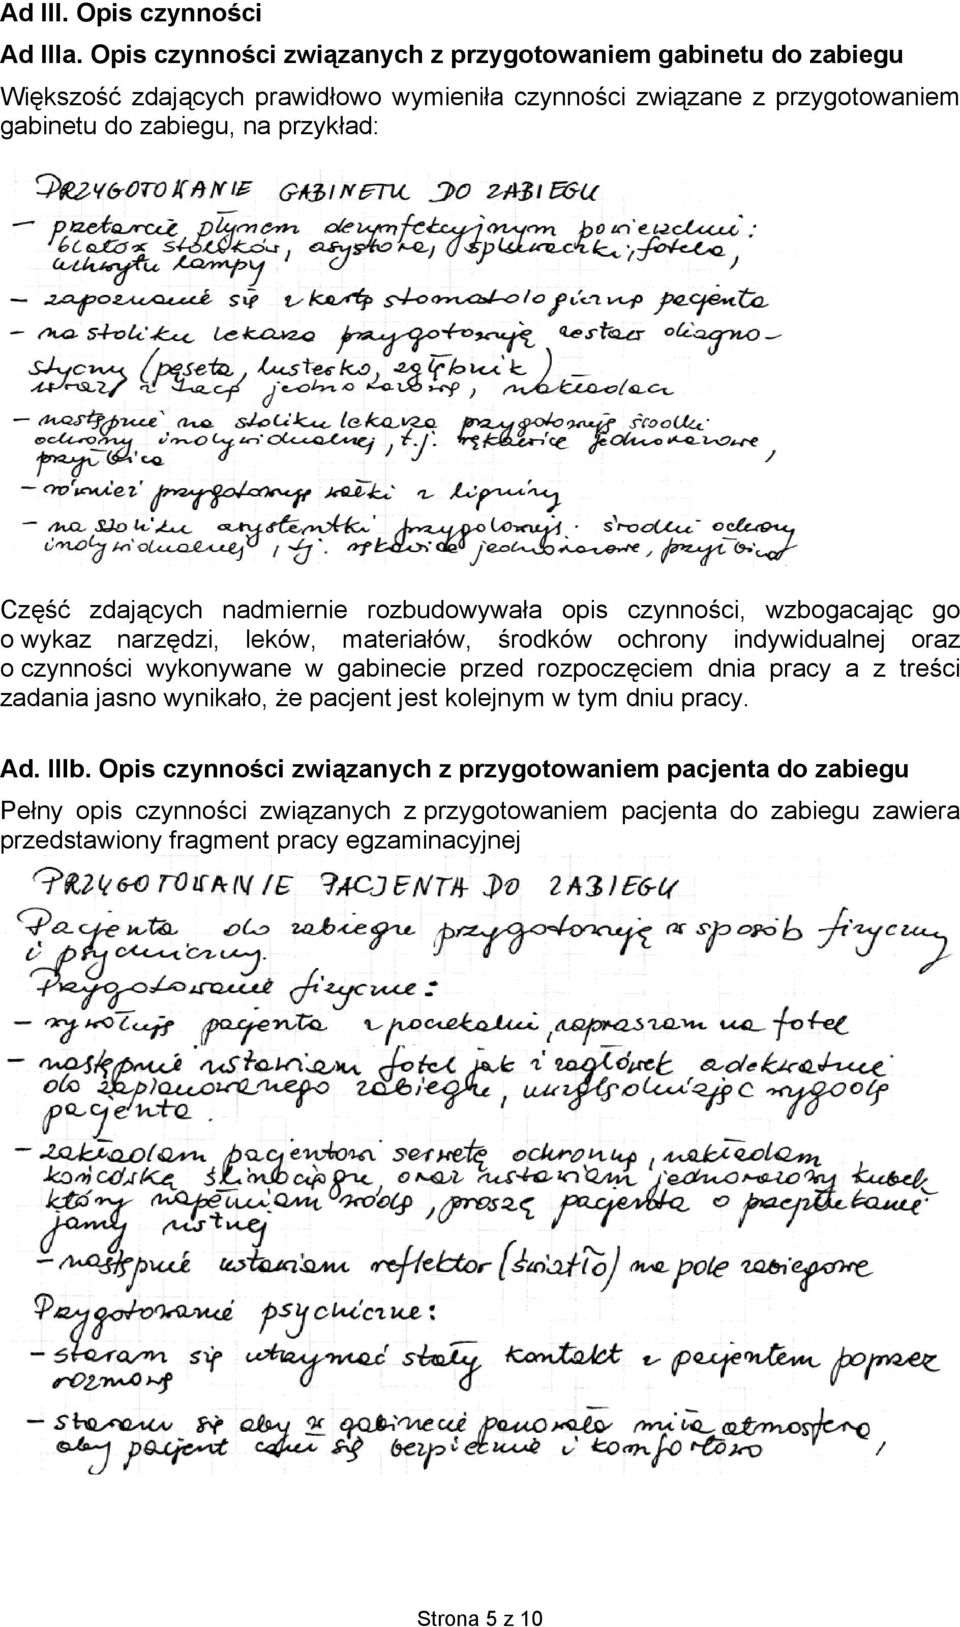 Ad III. Opis czynności
Ad IIIa. Opis czynności związanych z przygotowaniem gabinetu do zabiegu
Większość zdających prawidłowo wymieniła czynności związane z przygotowaniem
gabinetu do zabiegu, na przykład:
PRZYGOTOWANIE GABINETU DO ZABIEGU
- przetarcie płynem dezynfekcyjnym powierzchni:
blatów stolików, asystora, spluwaczki, fotela,
uchwytu lampy
- zapoznanie się z kartą stomatologiczną pacjenta
- na stoliku lekarza przygotowuję zestaw diagno-
styczny (pęseta, lusterko, zgłębnik)
wraz z tacą jednorazową, nakładacz
- następnie na stoliku lekarza przygotowuję środki
ochrony indywidualnej, t.j. rękawice jednorazowe,
przyłbica
- również przygotowuję wałki z ligniny
- na stoliku asystentki przygotowuję środki ochrony
indywidualnej, tj. rękawice jednorazowe, przyłbica
Część zdających nadmiernie rozbudowywała opis czynności, wzbogacając go
o wykaz narzędzi, leków, materiałów, środków ochrony indywidualnej oraz
o czynności wykonywane w gabinecie przed rozpoczęciem dnia pracy a z treści
zadania jasno wynikało, że pacjent jest kolejnym w tym dniu pracy.
Ad. IIIb. Opis czynności związanych z przygotowaniem pacjenta do zabiegu
Pełny opis czynności związanych z przygotowaniem pacjenta do zabiegu zawiera
przedstawiony fragment pracy egzaminacyjnej
PRZYGOTOWANIE PACJENTA DO ZABIEGU
Pacjenta do zabiegu przygotowuję w sposób fizyczny
i psychiczny.
Przygotowanie fizyczne:
- wywołuję pacjenta z poczekalni, zapraszam na fotel
- następnie ustawiam fotel jak i zagłówek adekwatnie
do zaplanowanego zabiegu, uwzględniając wygodę
pacjenta.
- zakładam pacjentowi serwetę ochronną, nakładam
końcówkę ślinociągu, oraz ustawiam jednorazowy kubek
który napełniam wodą, proszę pacjenta o przepłukanie
jamy ustnej
- następnie ustawiam reflektor (światło) na pole zabiegowe
Przygotowanie psychiczne:
- staram się utrzymać stały kontakt z pacjentem poprzez
rozmowę
- staram się aby w gabinecie panowała miła atmosfera,
aby pacjent czuł się bezpiecznie i komfortowo
Strona 5 z 10